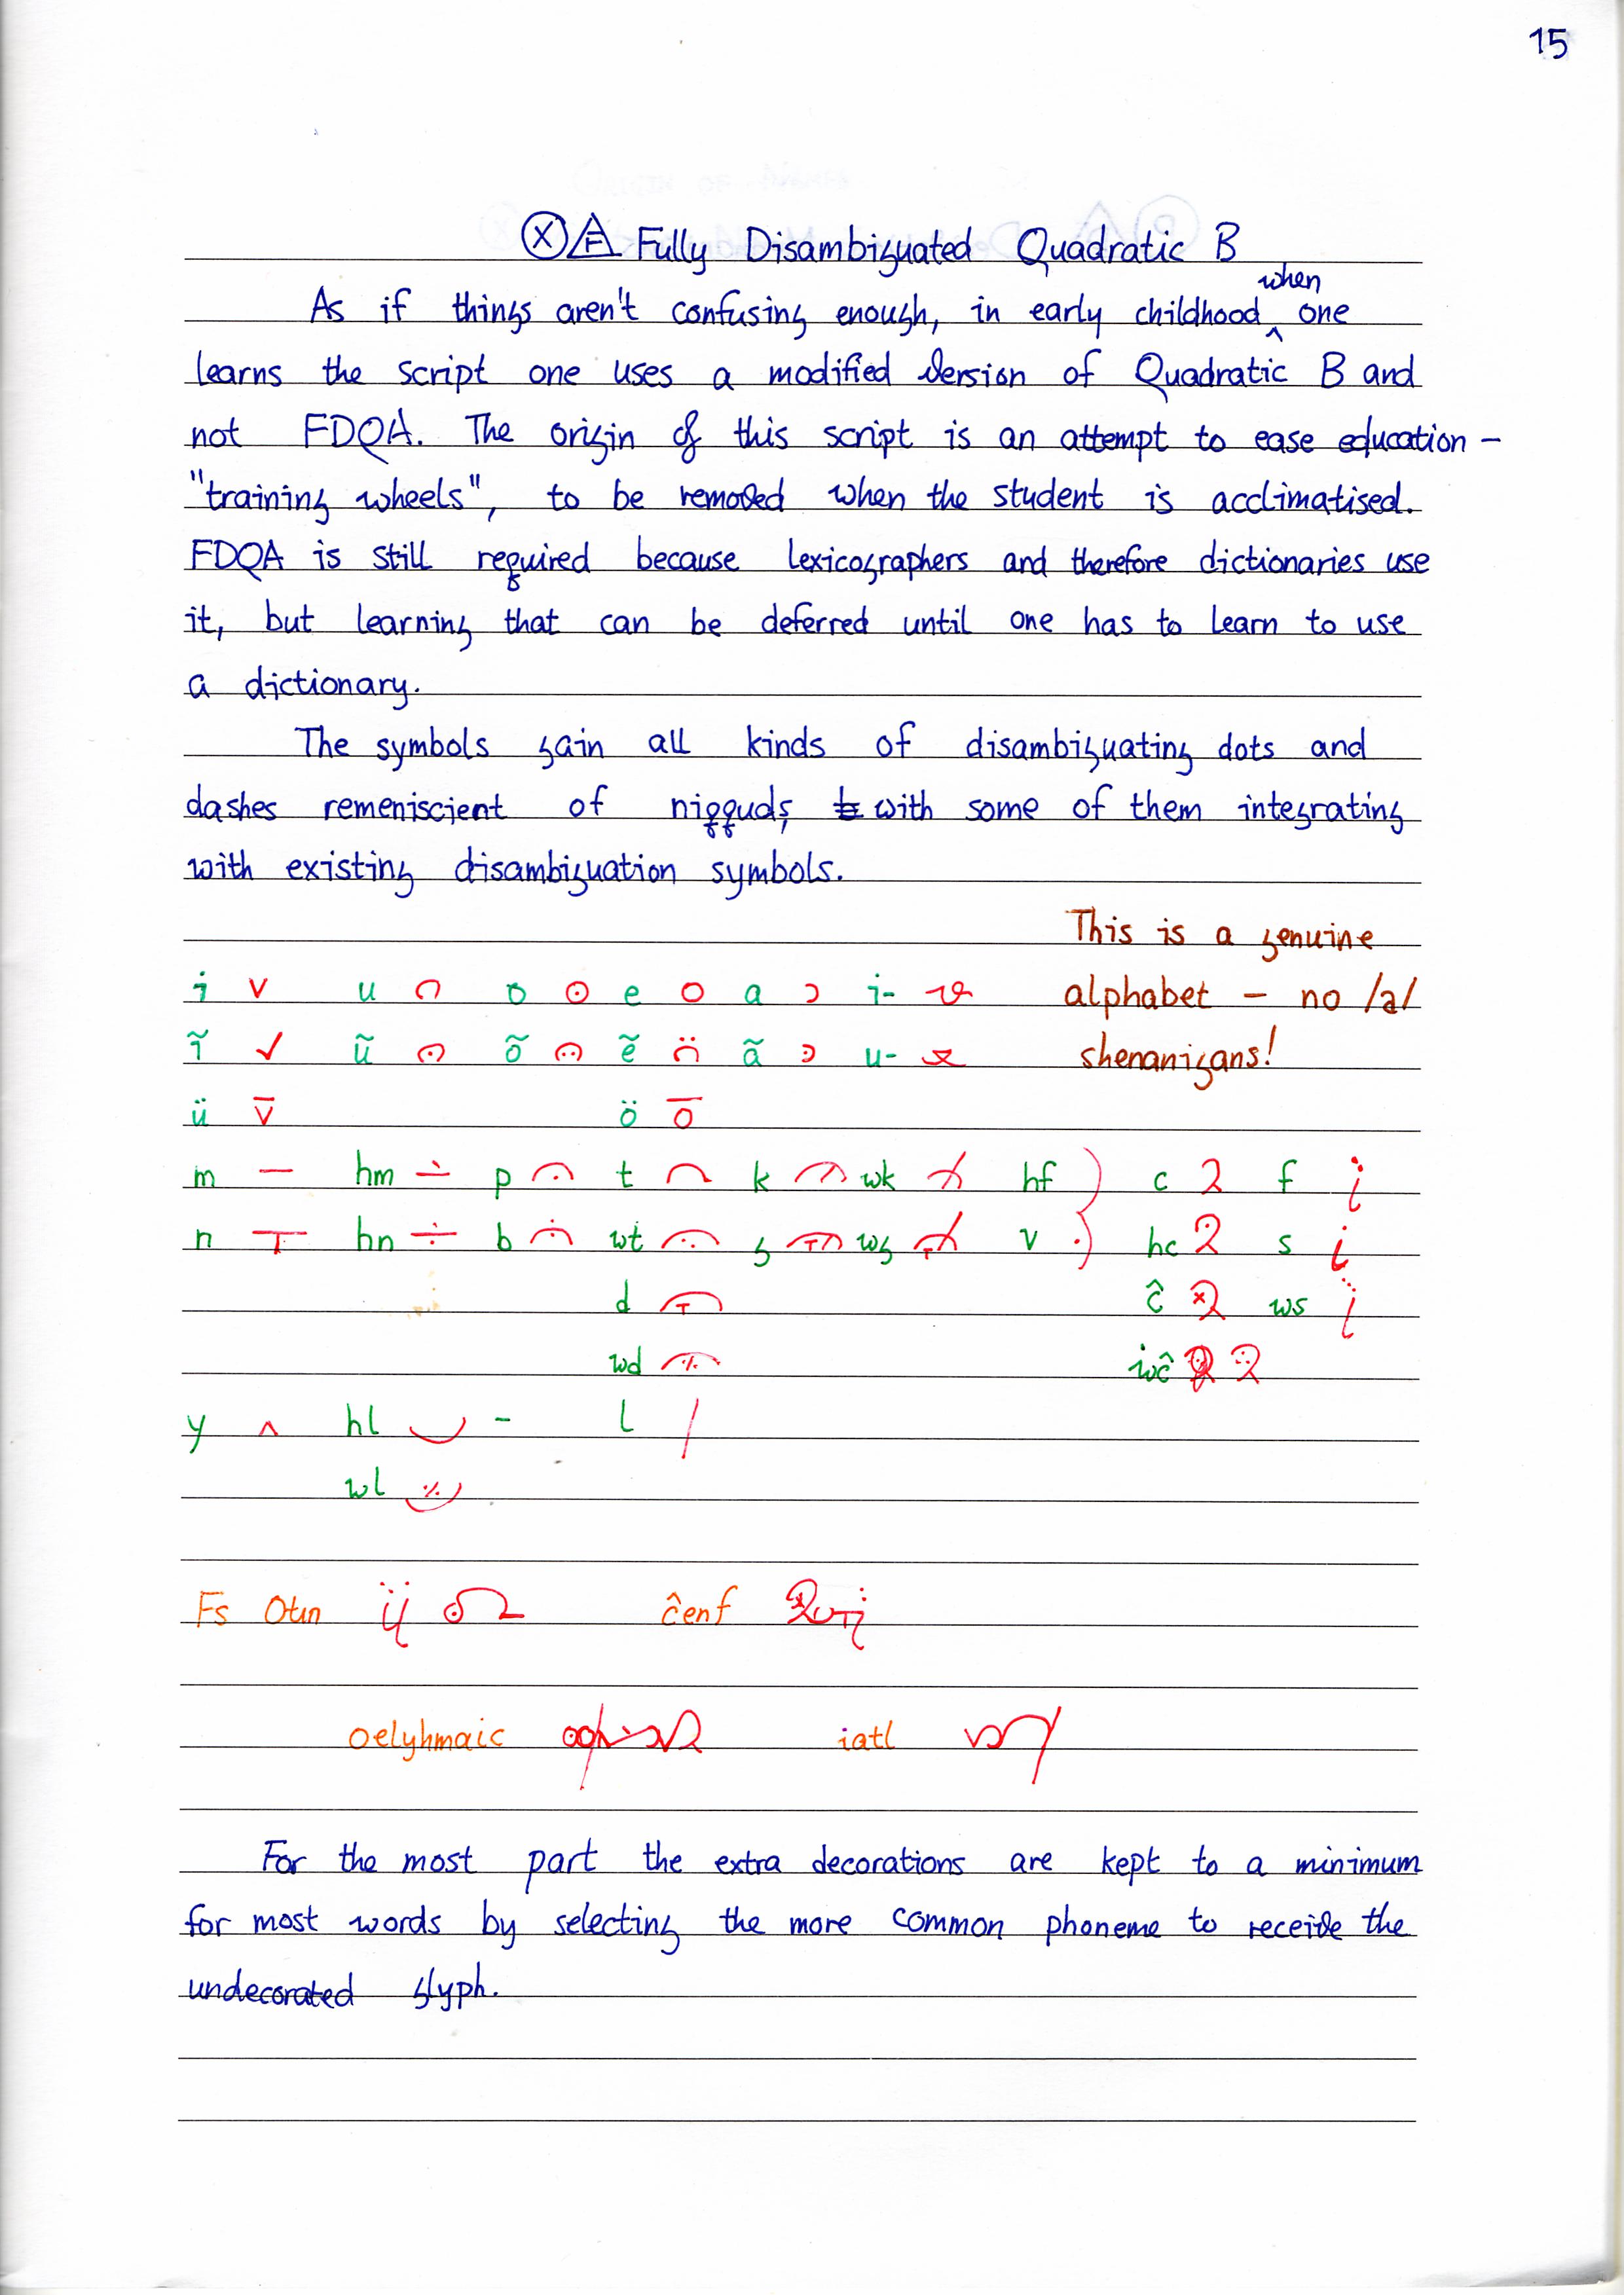 15
Fully Disambiguated Quadratic B
As if things aren't confusing enough, in early childhood when one
learns the script one uses a modified version of Quadratic B and
not FDQA. The origin of this script is an attempt to ease education –
"training wheels", to be removed when the student is acclimatised.
FDQA is still required because lexicographers and therefore dictionaries use
it, but learning that can be deferred until one has to learn to use
a dictionary.
The symbols gain all kinds of disambiguating dots and
dashes remeniscient of niqquds, with some of them integrating
with existing disambiguation symbols.
This is a genuine
alphabet – no /a/
shenanigans!
i u o e a i-
ĩ ũ õ ẽ ã u-
ü ö
m hm p t k wk hf c f
n hn b wt g wg v hc s
d ĉ ws
wd wĉ
y hl - l
wl
Fs Otın ĉenf
oelyhmaic iatl
For the most part the extra decorations are kept to a minimum
for most words by selecting the more common phoneme to receive the
undecorated glyph.